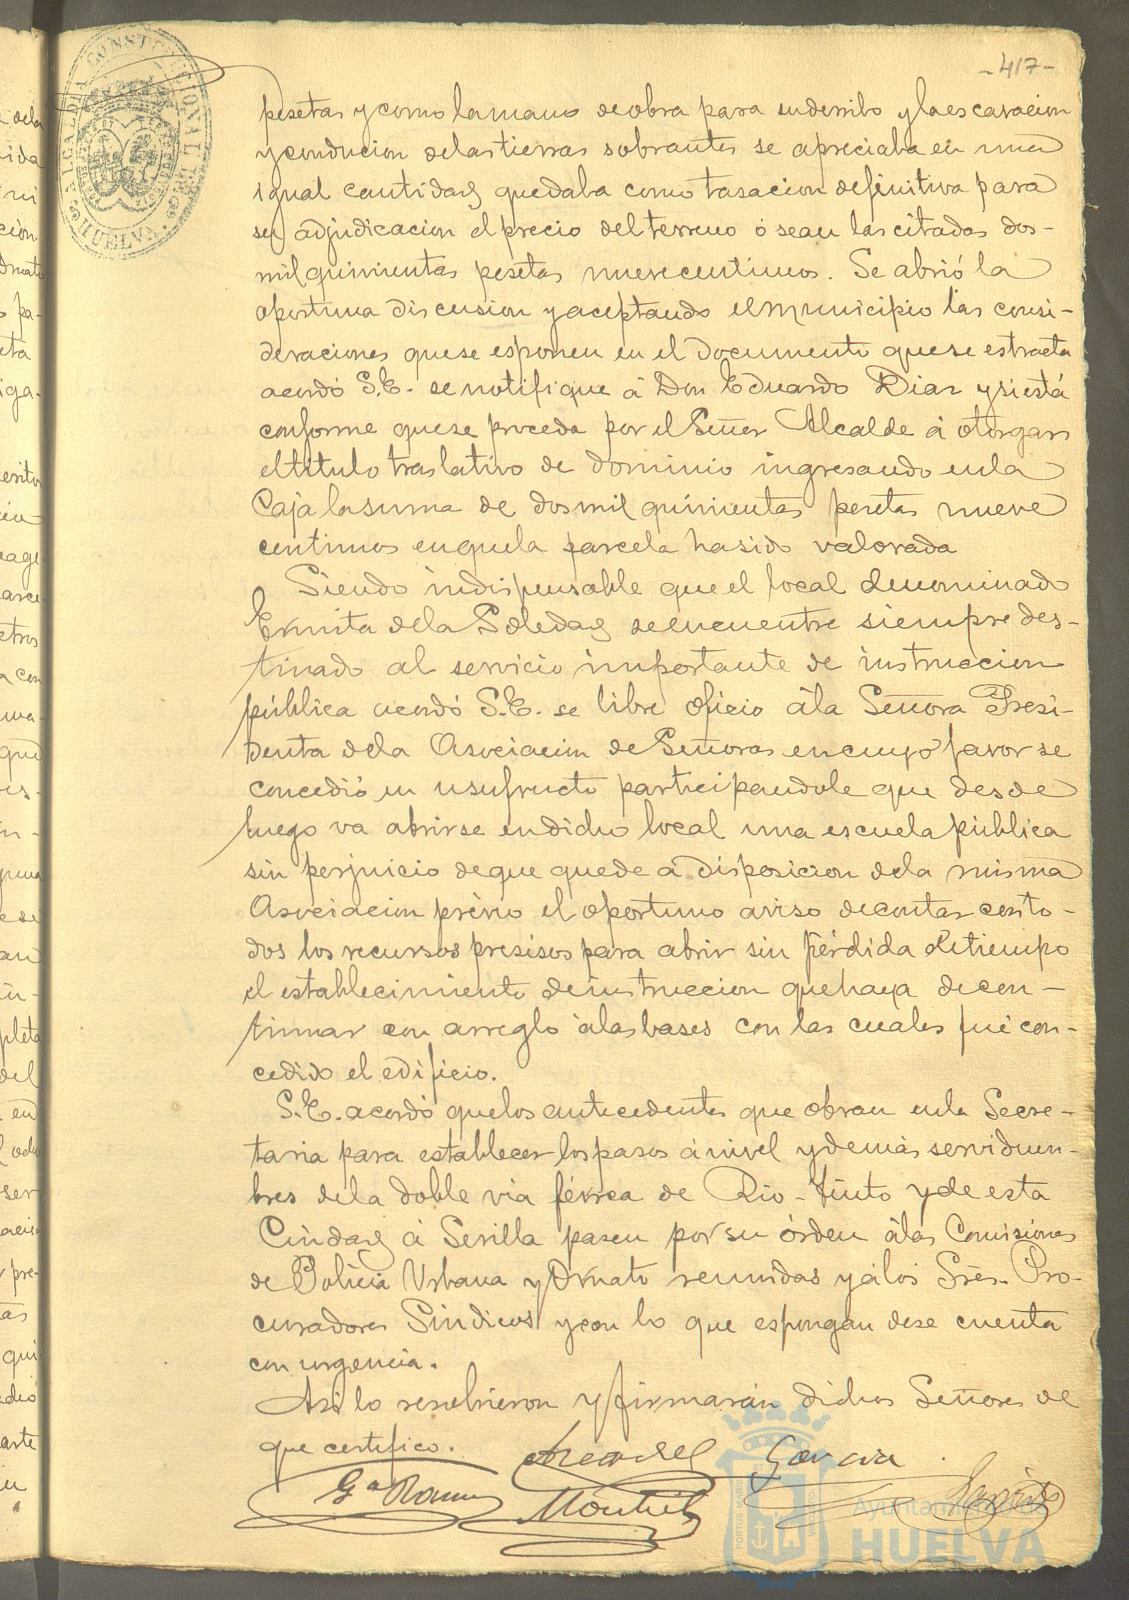 -417-
ALCALDIA CONSTITUCIONAL DE
HUELVA.
pesetas y como la mano de obra para su derribo y la escavacion
y conducion de las tierras sobrantes se apreciaba en una
igual cantidad quedaba como tasacion definitiva para
su adjudicacion el precio del terreno ó sean las citadas dos-
mil quinientas pesetas nueve centimos. Se abrió la
oportuna discusion y aceptando el municipio las consi-
deraciones que se esponen en el documento que se estracta
acordó S.E. se notifique á Don Eduardo Diaz y si está
conforme que se proceda por el Señor Alcalde á otorgar
el titulo traslativo de dominio ingresando en la
Caja la suma de dos mil quinientas pesetas nueve
centimos en que la parcela ha sido valorada
Siendo indispensable que el local denominado
Ermita de la Soledad se encuentre siempre des-
tinado al servicio importante de instruccion
pública acordó S.E. se libre oficio á la Señora Presi-
denta de la Asociacion de Señoras en cuyo favor se
concedió en usufructo participandole que desde
luego va abrirse en dicho local una escuela pública
sin perjuicio de que quede á disposicion de la misma
Asociacion prévio el oportuno aviso de contar con to-
dos los recursos presisos para abrir sin pérdida de tiempo
el establecimiento de instruccion que haya de con-
tinuar con arreglo á las bases con las cuales fué con-
cedido el edificio.
S.E. acordó que los antecedentes que obran en la Secre-
taria para establecer los pasos á nivel y demás servidum-
bres de la doble via férrea de Rio-Tinto y de esta
Ciudad á Sevilla pasen por su órden á las Comisiones
de Policia Urbana y Ornato reunidas y á los Sres. Pro-
curadores Sindicos y con lo que espongan dese cuenta
con urgencia.
Asi lo resolvieron y firmarán dichos Señores de
que certifico.
Garcia
Gª Ramos
Montiel
Ayuntamiento de
HUELVA